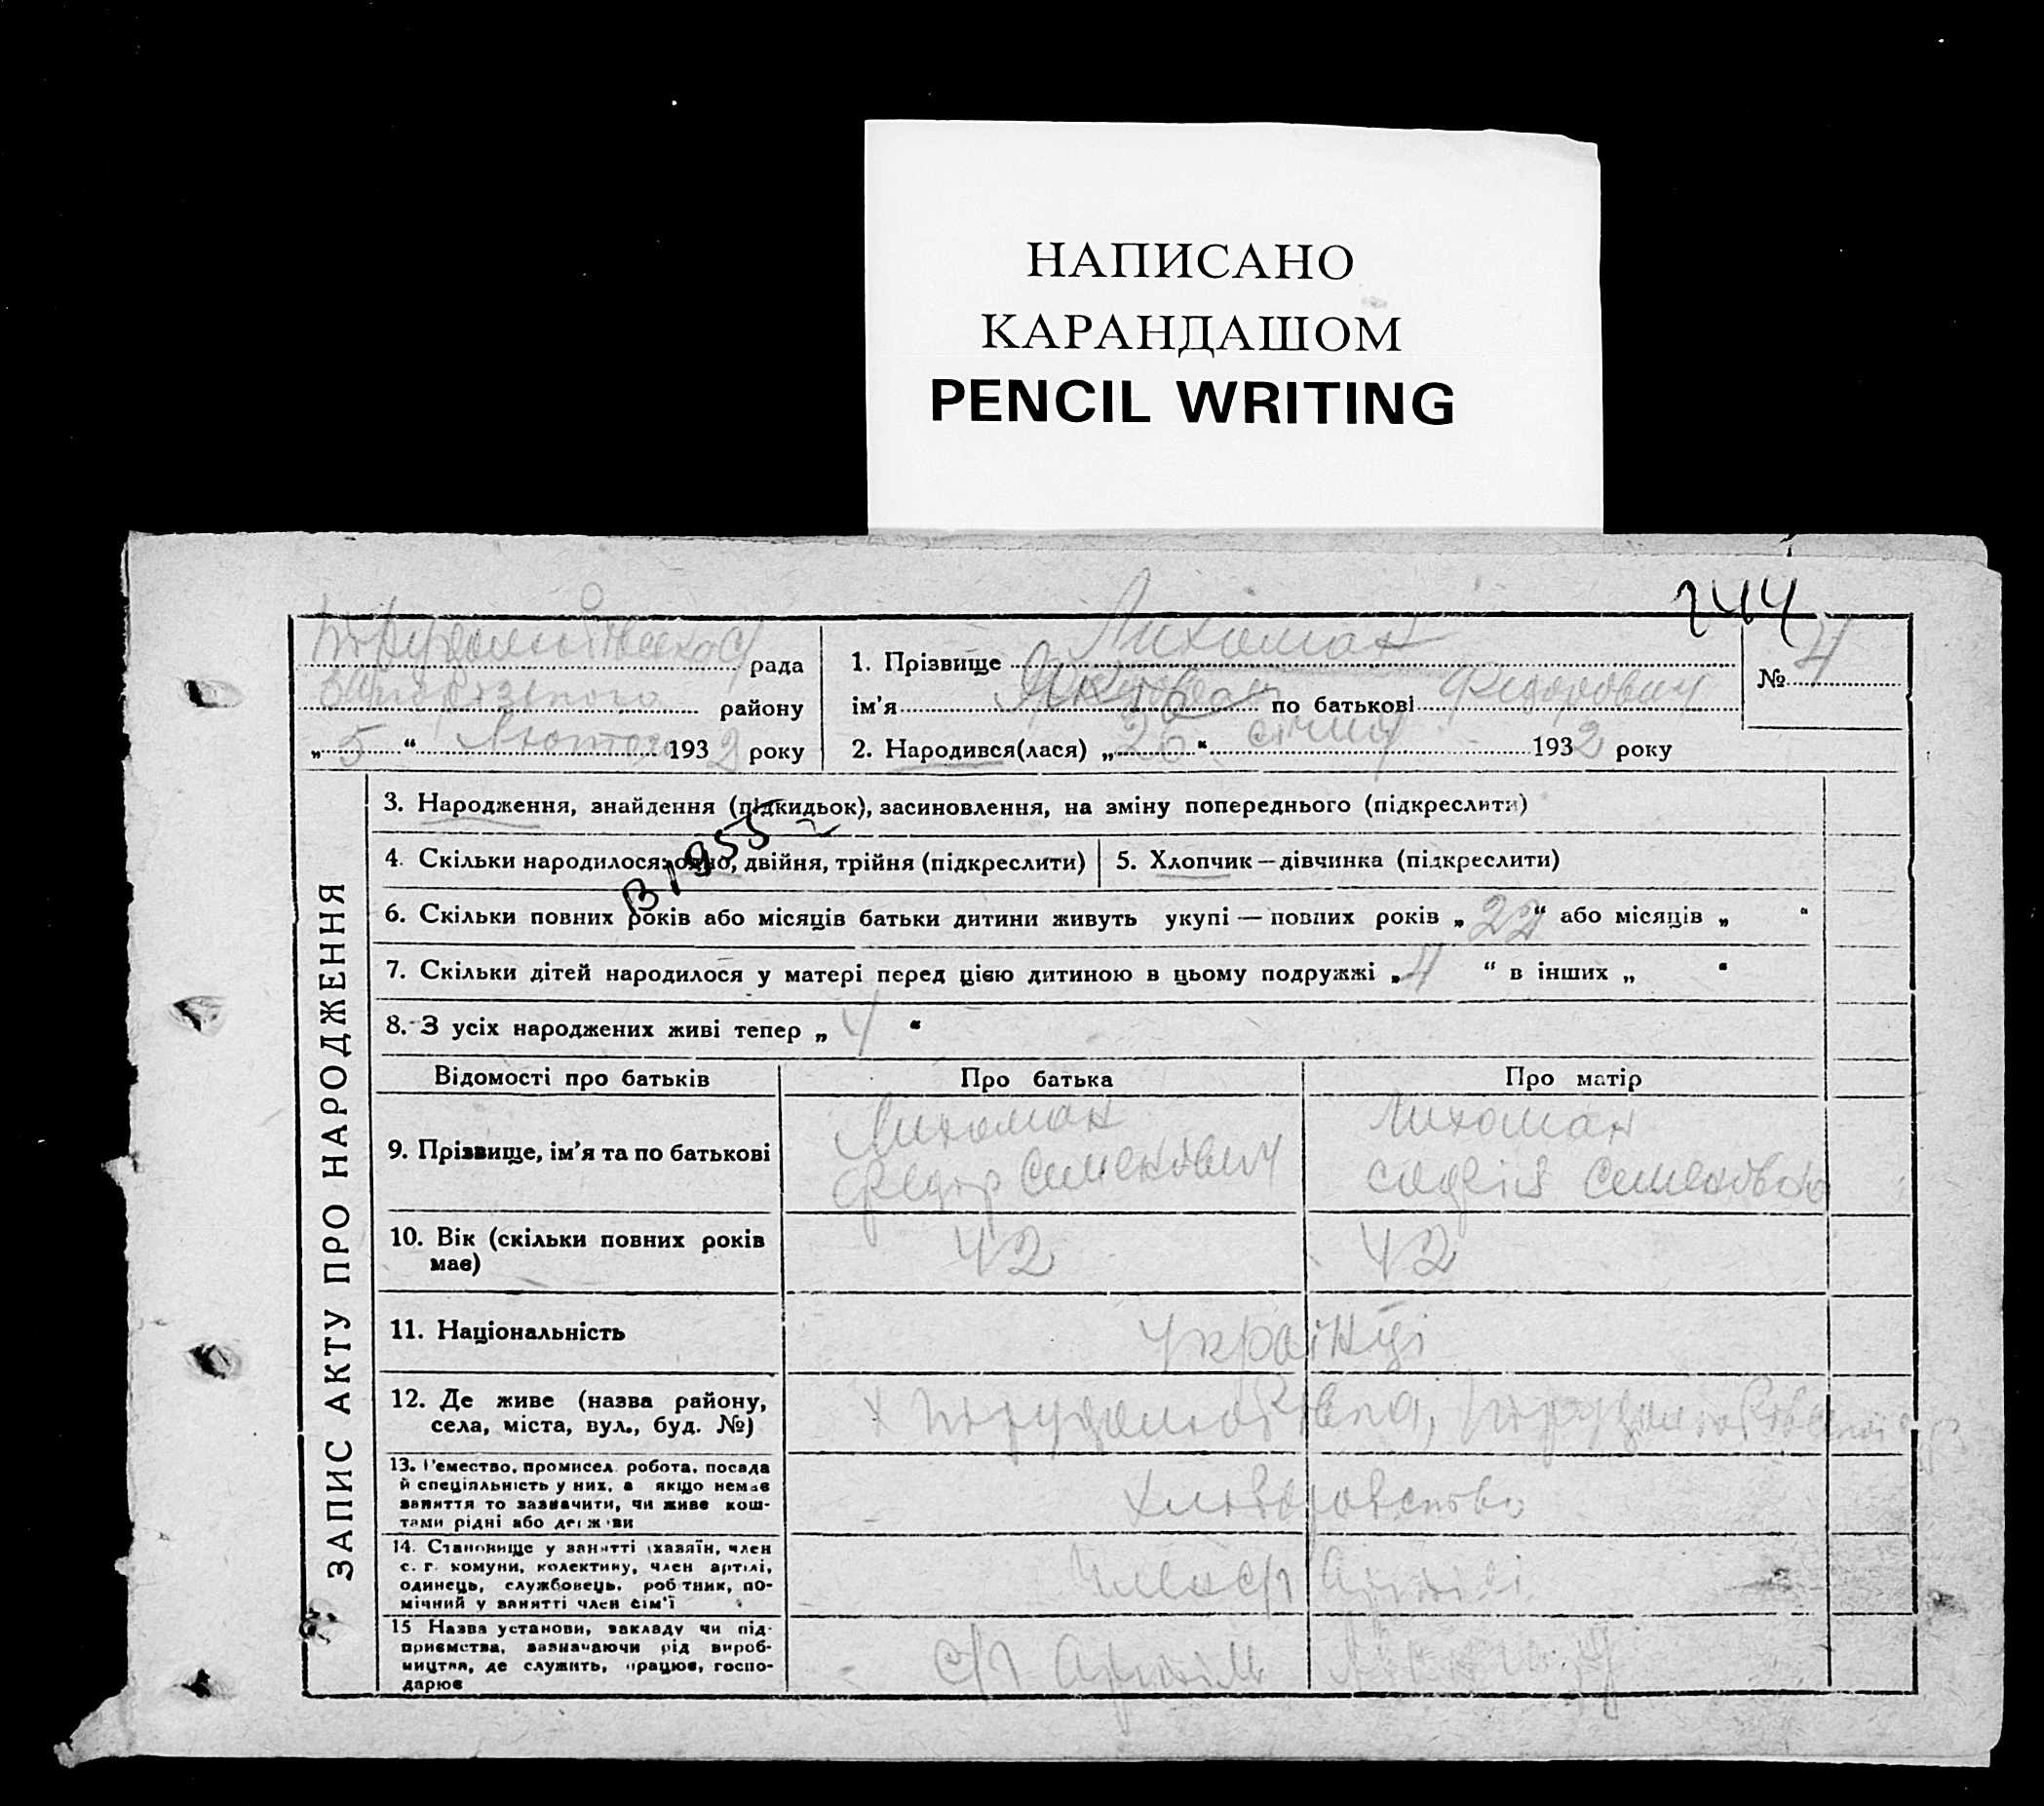 НАПИСАНО
КАРАНДАШОМ
PENCIL WRITING
244
рада
району
„ 5 “ Лютого 1932 року
1. Прізвище Лихоман
ім'я по батькові Федорович
№ 4
2. Народився(лася) „ 26 “ січня 1932 року
ЗАПИС АКТУ ПРО НАРОДЖЕННЯ
3. Народження, знайдення (підкидьок), засиновлення, на зміну попереднього (підкреслити)
В 1955
4. Скільки народилося: одно, двійня, трійня (підкреслити)
5. Хлопчик — дівчинка (підкреслити)
6. Скільки повних років або місяців батьки дитини живуть укупі — повних років „ 22 “ або місяців „ “
7. Скільки дітей народилося у матері перед цією дитиною в цьому подружжі „ 4 “ в інших „ “
8. З усіх народжених живі тепер „ 4 “
Відомості про батьків
Про батька
Про матір
9. Прізвище, ім'я та по батькові
Лихоман
Федір Семенович
Лихоман
Семеновна
10. Вік (скільки повних років
має)
42
42
11. Національність
Українці
12. Де живе (назва району,
села, міста, вул., буд. №)
13. Ремество, промисел, робота, посада
й спеціяльність у них, а якщо немає
заняття то зазначити, чи живе кош-
тами рідні або держави
Хліборобство
14. Становище у занятті (хазяїн, член
с. г. комуни, колективу, член артілі,
одинець, службовець, робітник, по-
мічний у занятті член сім'ї
Член с/г Артілі
15 Назва установи, закладу чи під-
приємства, зазначаючи рід вироб-
ництва, де служить, працює, госпо-
дарює
с/г Артіль